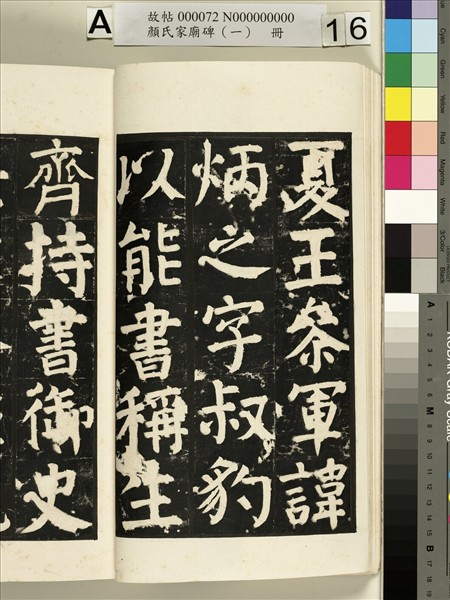 故帖 000072 N000000000
顏氏家廟碑（一） 冊
A
16
夏王參軍諱
炳之字叔豹
以能書稱生
齊持書御史
Cyan
Green
Yellow
Red
Magenta
White
3/Color
Black
A
1
2
3
4
5
6
M
8
9
10
11
12
13
14
15
B
17
18
19